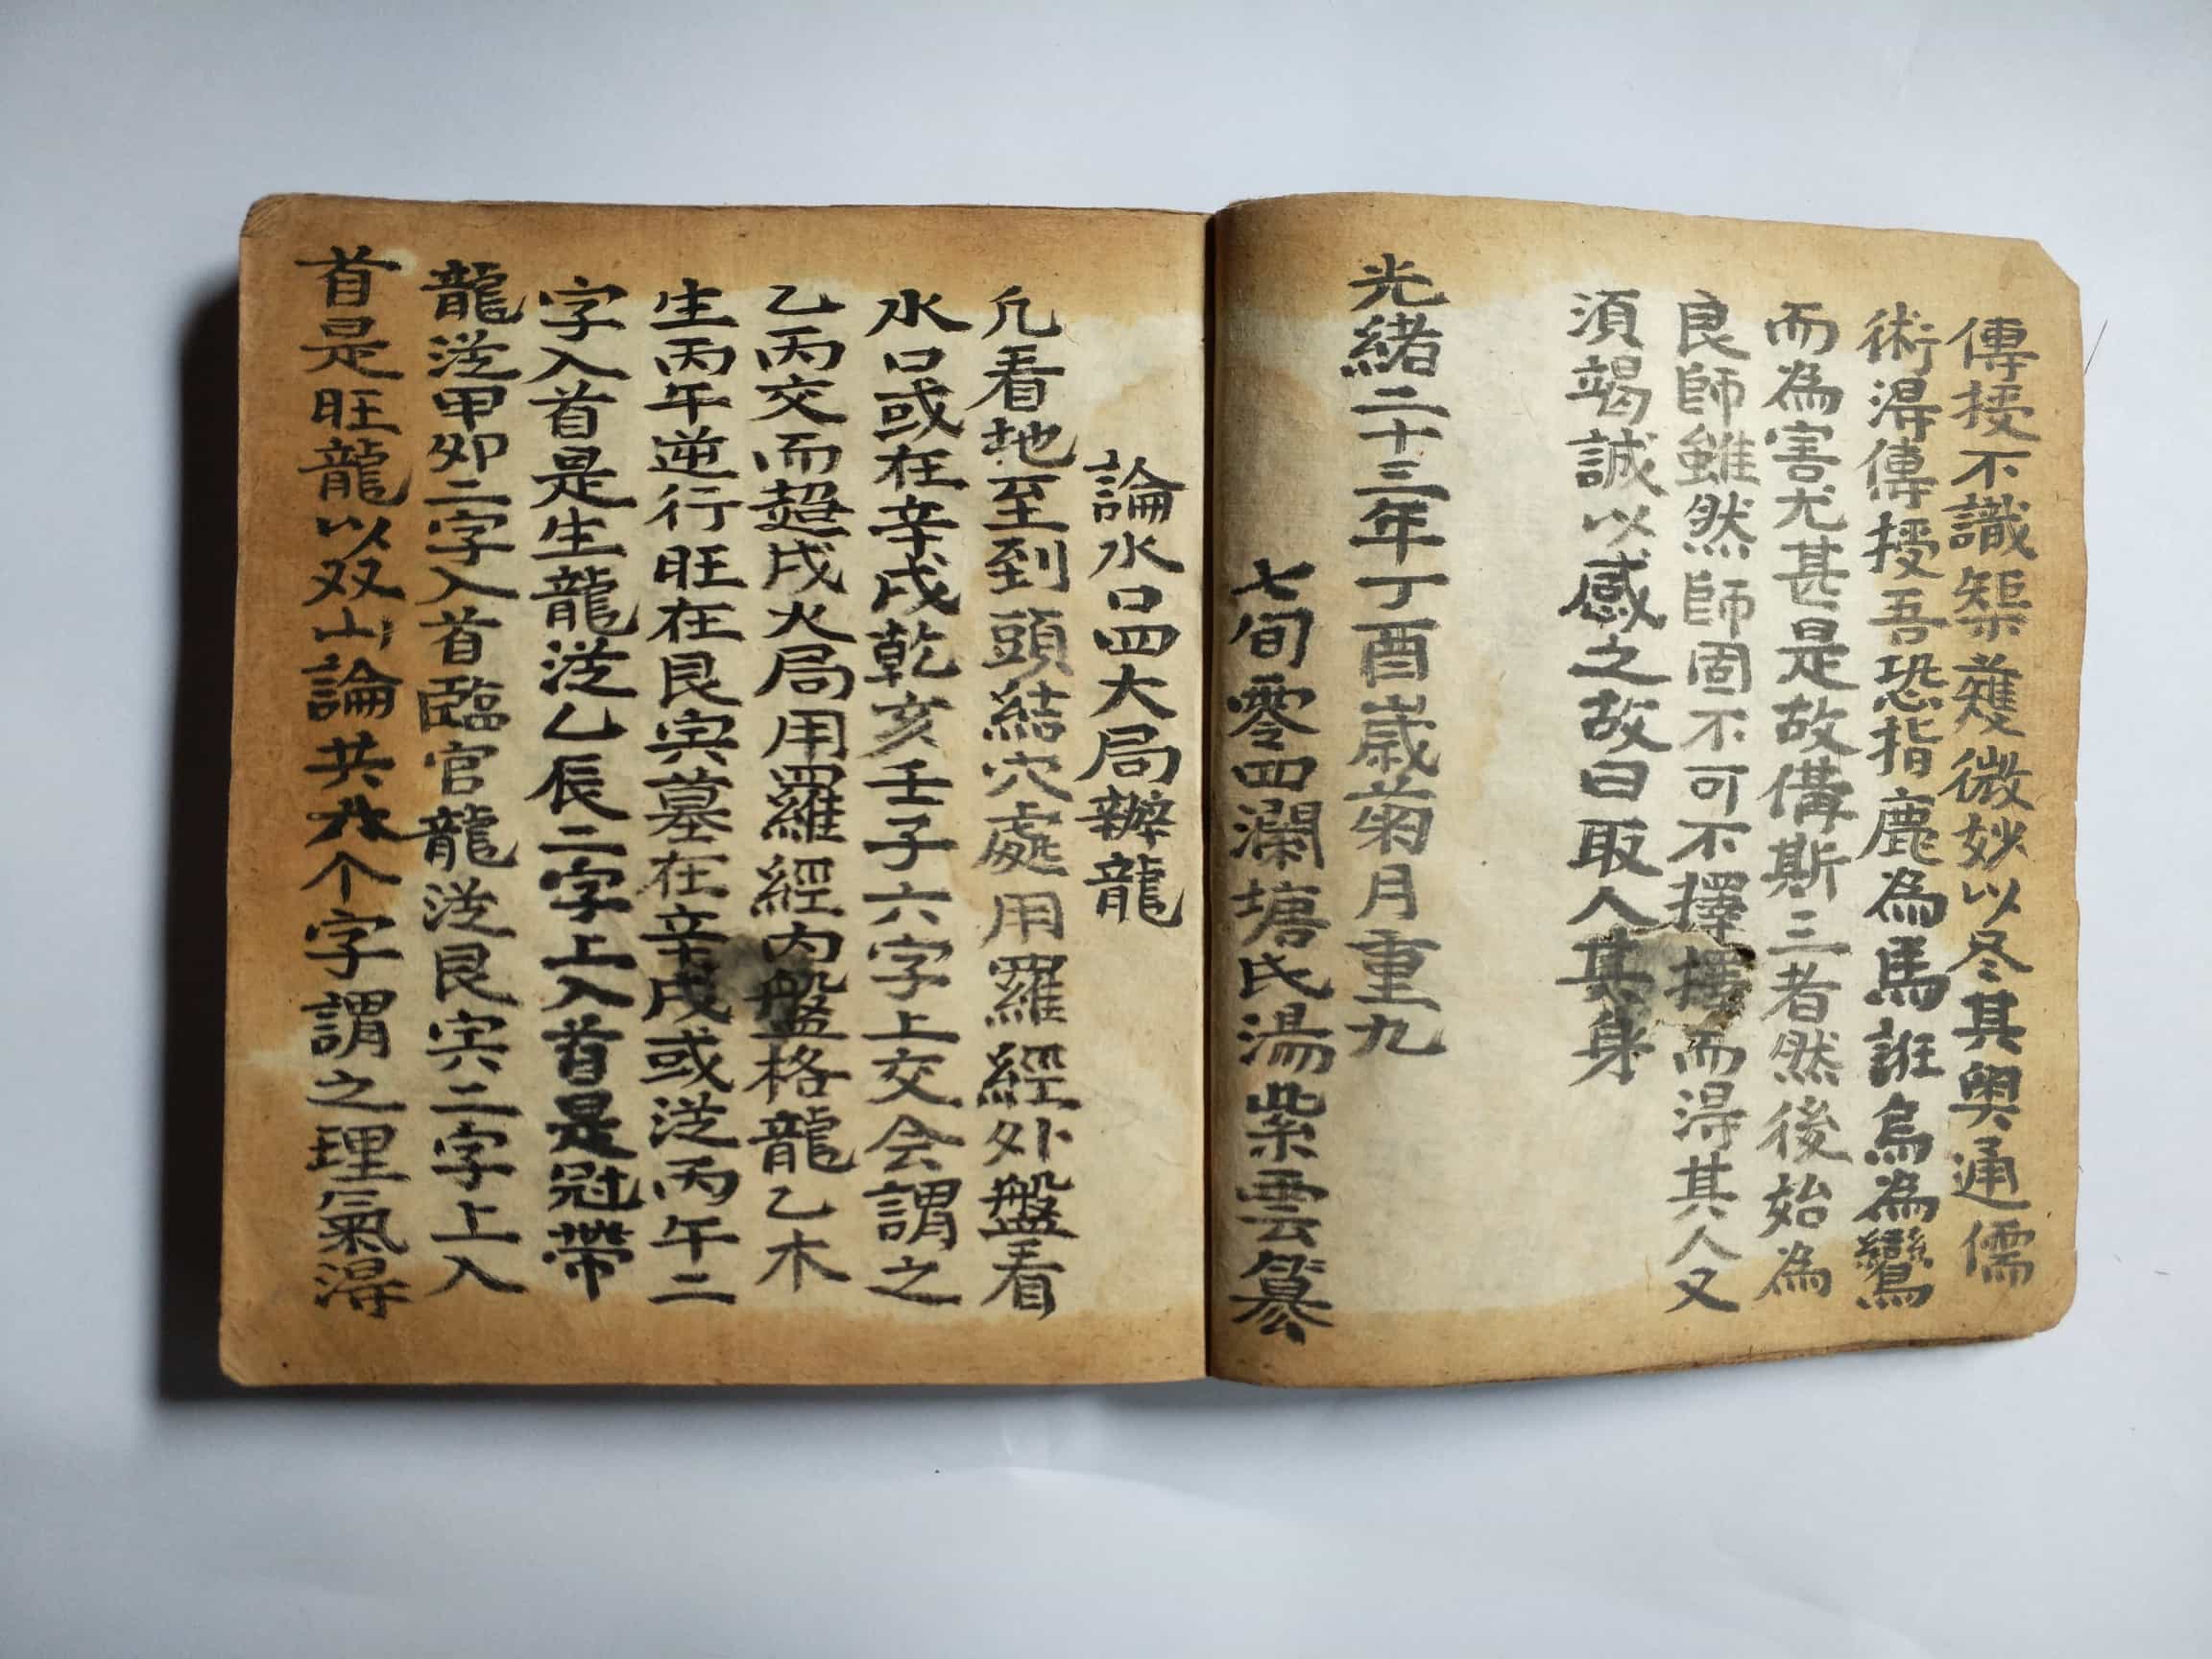 傳授不識榘蒦微妙以尽其奥通儒
術淂傳授吾恐指鹿為馬誑烏為鸞
而為害尤甚是故俻斯三者然後始為
良師雖然師固不可不擇擇而淂其人又
須竭誠以感之故曰取人其身
光緒二十三年丁酉嵗菊月重九
七旬零四瀾塘氏湯紫雲纂
論水口四大局辦龍
凢看地至到頭結穴處用羅經外盤看
水口或在辛戌乾亥壬子六字上交会謂之
乙丙交而趨戌火局用羅經内盤格龍乙木
生丙午逆行旺在艮寅墓在辛戌或従丙午二
字入首是生龍従乙辰二字上入首是冠帶
龍従甲卯二字入首臨官龍従艮寅二字上入
首是旺龍以双山論共八个字謂之理氣淂